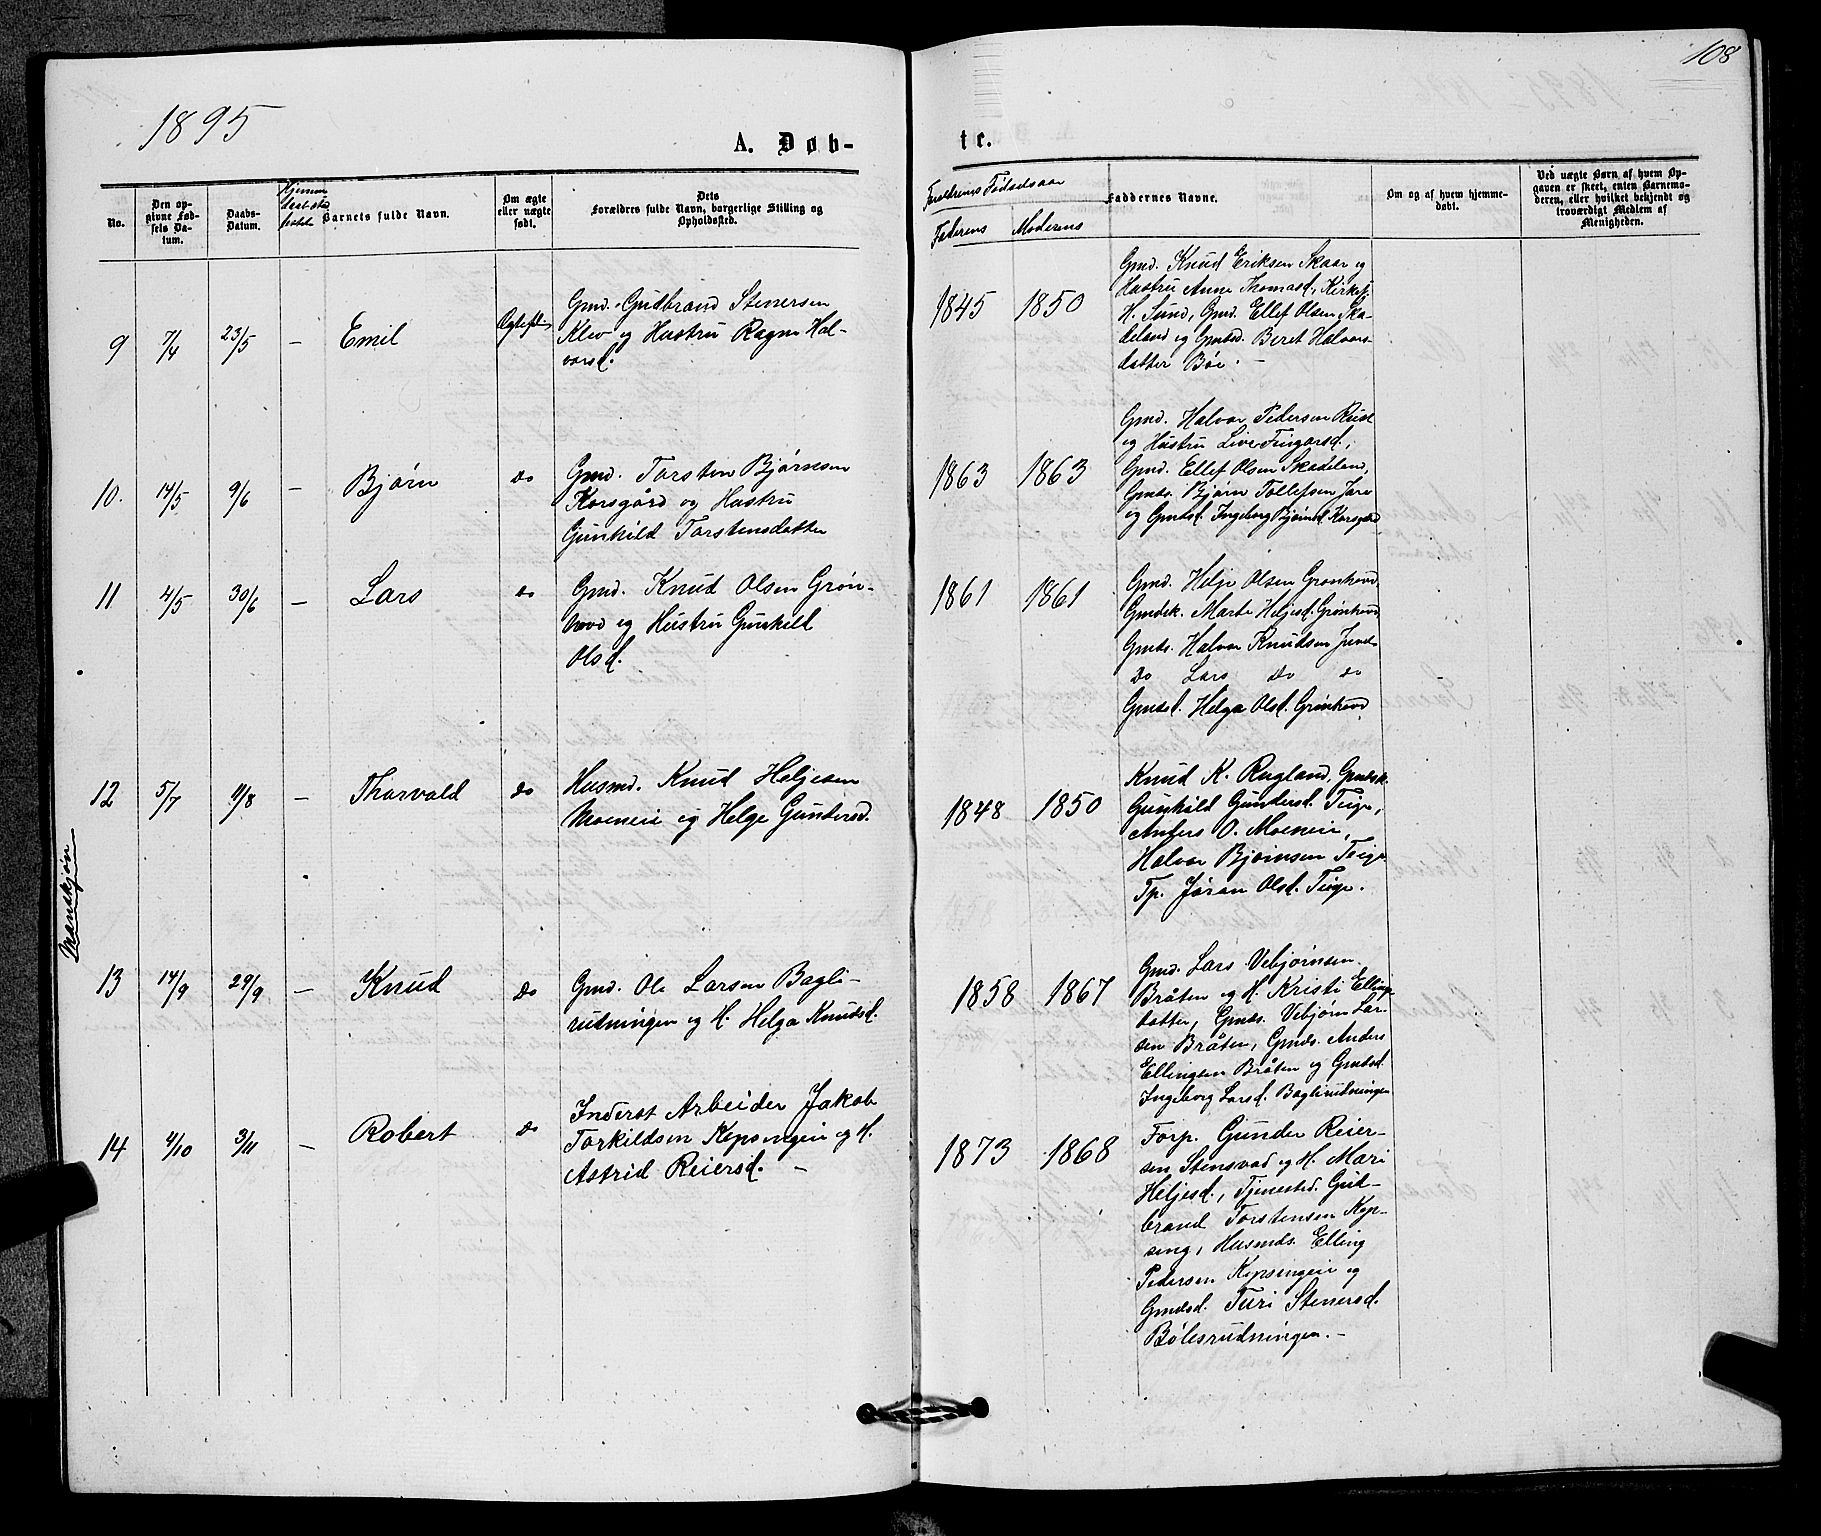 108
1895
A. Døb-
te.
No.
Den op-
givne Fød-
sels Da-
tum.
Daabs-
Datum.
Barnets fulde Navn.
Om ægte
eller uægte
født.
Dets
Forældres fulde Navn, borgerlige Stilling og
Opholdssted.
Forældrenes Fødselsaar
Faderens
Moderens
Faddernes Navne.
Om og af hvem hjemme-
døbt.
Ved uægte Børn af hvem Op-
gaven er skeet, enten Barnemo-
deren, eller hvilket bekjendt og
troværdigt Medlem af
Menigheden.
Mandkjøn
9 7/4 23/5 – Emil
Gmd. Gudbrand Stenersen
Klev og Hustru Ragne Hal-
vorsd.
1845 1850
Gmd. Knud Eriksen Skaar og
Hustru Anne Thomasd., Kirkes.
H. Sund, Gmd. Ellef Olsen Ska-
deland og Gmdsd. Beret Halvors-
datter Böe. –
10. 14/5 9/6 – Bjørn do
Gmd. Torsten Bjørnsen
Korsgård og Hustru
Gunhild Torstensdatter
1863 1863
Gmd. Halvor Pedersen Rust
og Hustru Live Fingarsd.,
Gmd. Ellef Olsen Skadeland,
Gmds. Bjørn Tollefsen Jare
og Gmdsd. Ingeborg Bjørnsd. Korsgård
11 4/5 30/6 – Lars do
Gmd. Knud Olsen Grøn-
hovd og Hustru Gunhild
Olsd.
1861 1861
Gmd. Helje Olsen Grønhovd
Gmdsk. Marte Heljesd. Grønhovd
Gmds. Halvor Knudsen
do Lars do do
Gmdsd. Helga Olsd. Grønhovd
12 5/7 11/8 – Thorvald do
Husmd. Knud Heljesen
Moeneie og Helge Gundersd.
1848 1850
Knud K. Rugland, Gmdsk.
Gunhild Gundersd. Teige,
Anders O. Moeneie,
Halvor Bjørnsen Teige
Tp. Jøran Olsd. Teige.
13 14/9 29/9 – Knud do
Gmd. Ole Larsen Bagli-
rudningen og H. Helga Knudsd.
1858 1867
Gmd. Lars Vebjørnsen
Bråten og H. Kristi Ellings-
datter, Gmds. Vebjørn Lar-
sen Bråten, Gmds. Anders
Ellingsen Bråten og Gmdsd.
Ingeborg Larsd. Baglirudningen
14 4/10 3/11 – Robert do
Inderst Arbeider Jakob
Torkildsen Kopsengeie og H.
Astrid Reiersd. –
1873 1868
Forp. Gunder Reier-
sen Stensvad og H. Mari
Heljesd., Tjenested. Gud-
brand Torstensen Kop-
seng, Husmds. Elling
Pedersen Kopsengeie og
Gmdsd. Turi Stenersd.
Bölesrudningen. –